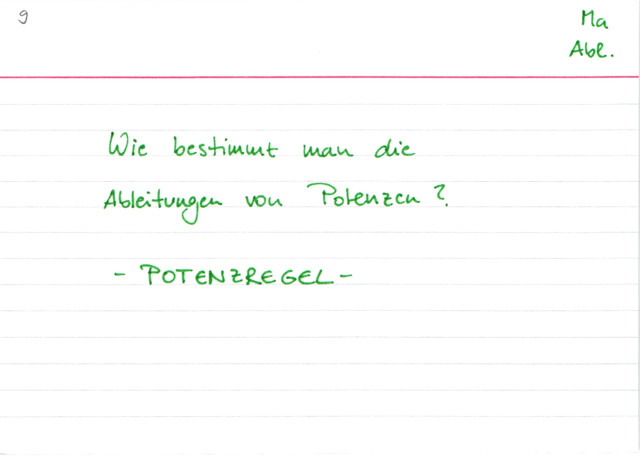 9
Ma
Abl.
Wie bestimmt man die
Ableitungen von Potenzen?
- POTENZREGEL -